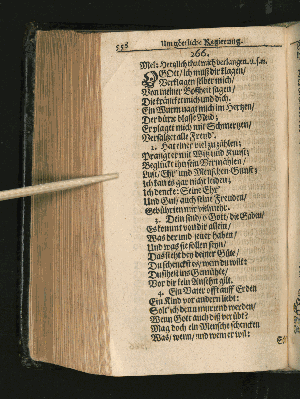 558 Um götliche Regierung.
266.
Mel: Hertzlich thut mich verlangen. u. s. w.
O GOtt/ ich muß dir klagen/
Verklagen selber mich/
Von meiner Boßheit sagen/
Die kräncket mich und dich.
Ein Wurm nagt mich im Hertzen/
Der dürre blasse Neid/
Er plaget mich mit Schmertzen/
Versaltzet alle Freud'.
2. Hat einer viel zu zählen;
Prangt er mit Witz und Kunst;
Beglückt ihn sein Vermählen/
Lust/ Ehr' und Menschen Gunst;
Ich kan es gar nicht leiden;
Ich dencke: Seine Ehr'
Und Gut/ auch seine Freuden/
Gebührten mir vielmehr.
3. Dein sind/ o Gott/ die Gaben/
Es kommt von dir allein/
Was der und jener haben/
Und was sie sollen seyn/
Das steht bey deiner Güte/
Du schenckst es/ wem du wilt:
Du siehst ins Gemühte/
Vor dir kein Ansehn gilt.
4. Ein Vater offt auff Erden
Ein Kind vor andern liebt:
Solt' ich denn murrend werden/
Wenn Gott auch diß verübt?
Mag doch ein Mensche schencken
Was/ wenn/ und wem er wil: